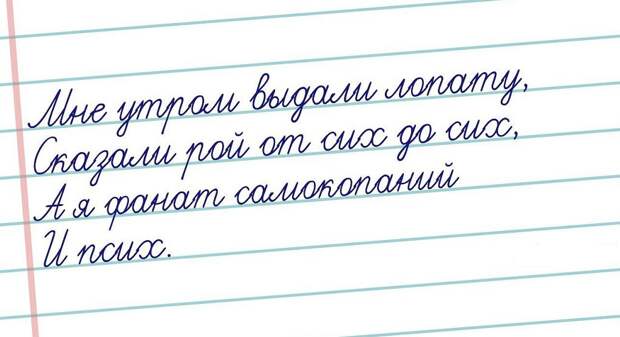 Мне утром выдали лопату,
Сказали рой от сих до сих,
А я фанат самокопаний
И псих.